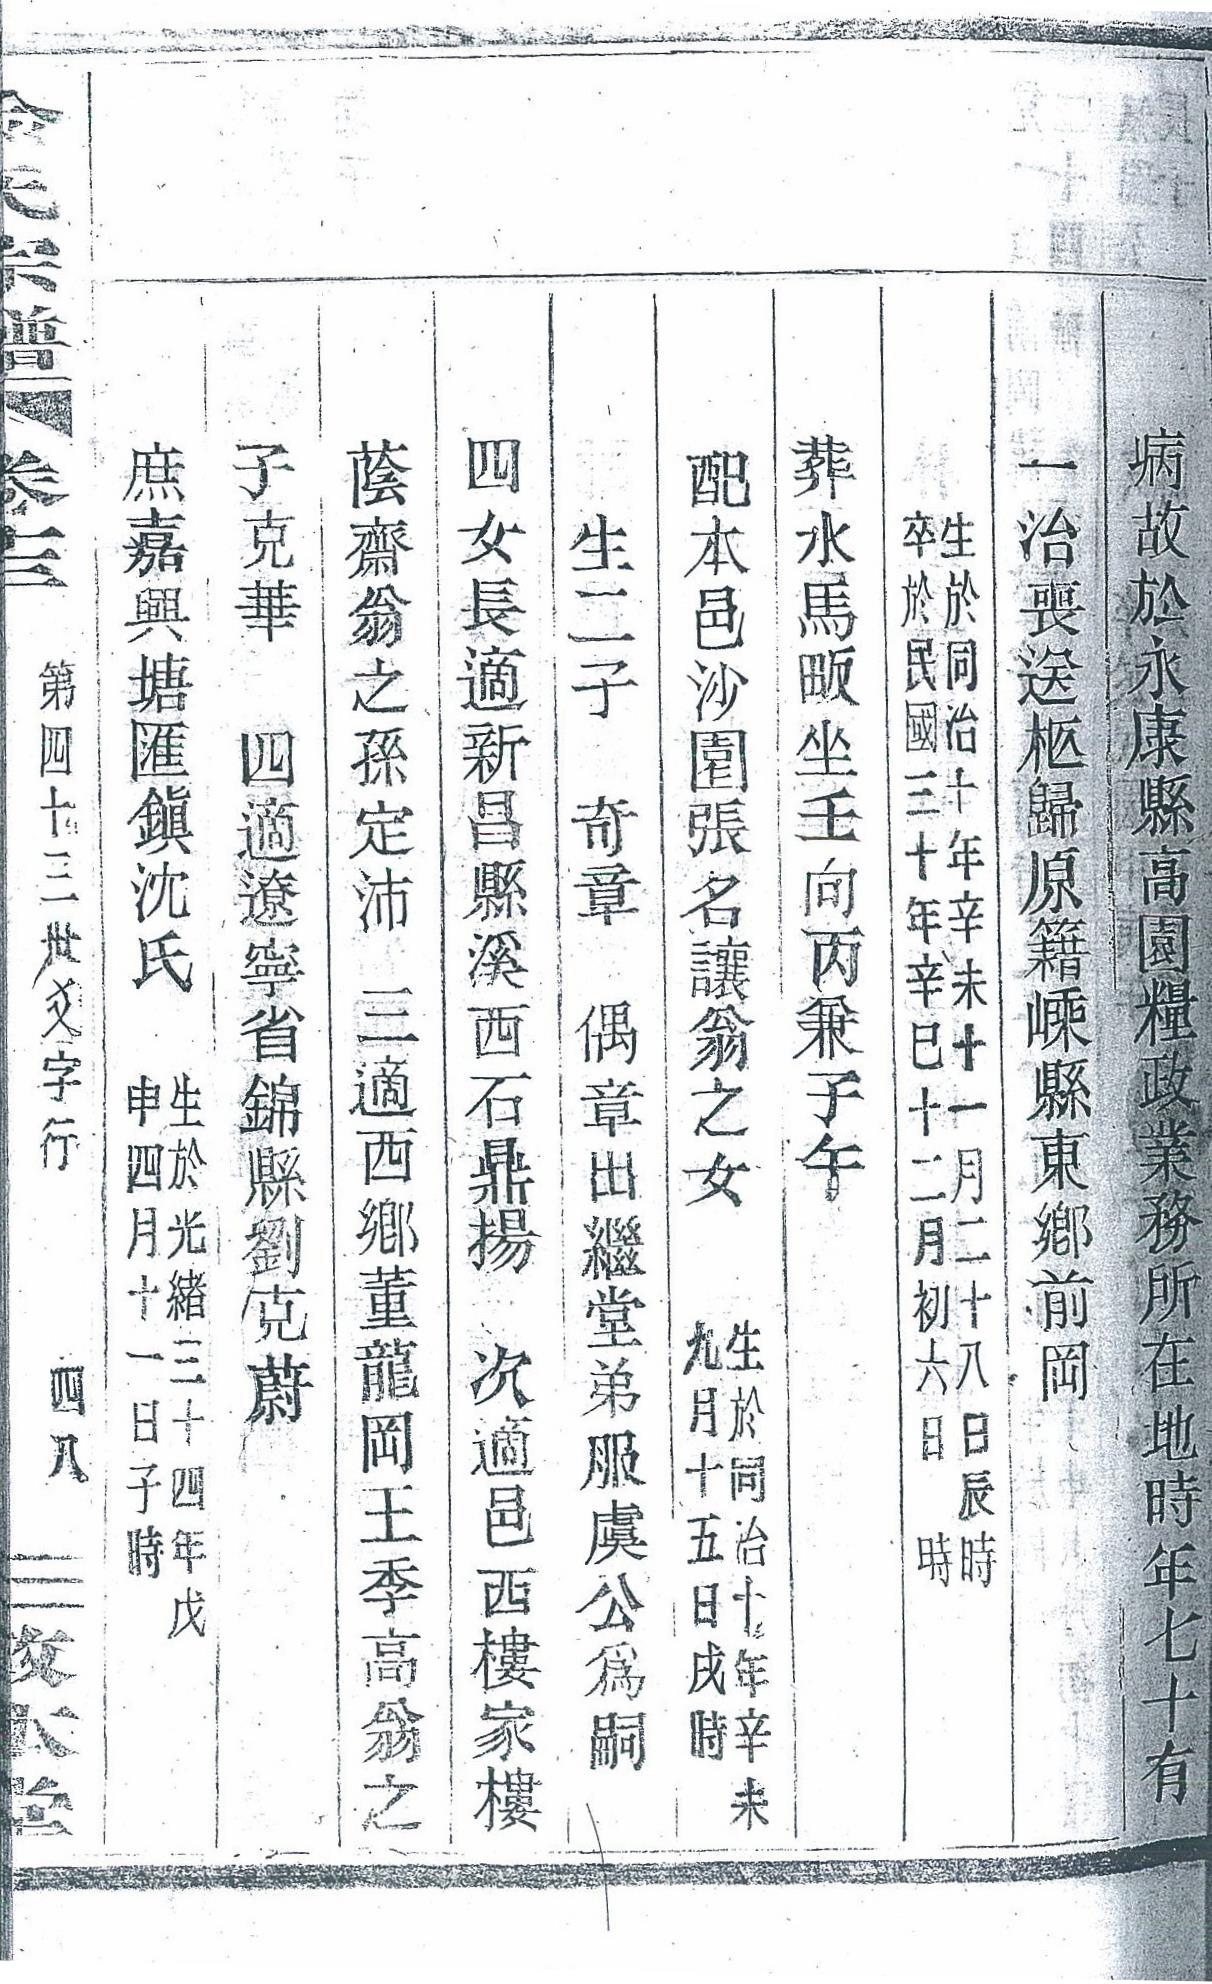 病故於永康縣高園糧政業務所在地時年七十有
一治喪送柩歸原籍嵊縣東鄉前岡
生於同治十年辛未十一月二十八日辰時
卒於民國三十年辛巳十二月初六日 時
葬水馬畈坐壬向丙兼子午
配本邑沙園張名讓翁之女 生於同治十年辛未
九月十五日戌時
生二子 奇章 偶章出繼堂弟服虞公爲嗣
四女長適新昌縣溪西石鼎揚 次適邑西樓家樓
蔭齋翁之孫定沛 三適西鄉董龍岡王季高翁之
子克華 四適遼寧省錦縣劉克蔚
庶嘉興塘匯鎮沈氏 生於光緒三十四年戊
申四月十一日子時
氏宗譜 卷三 第四十三世文字行 四八